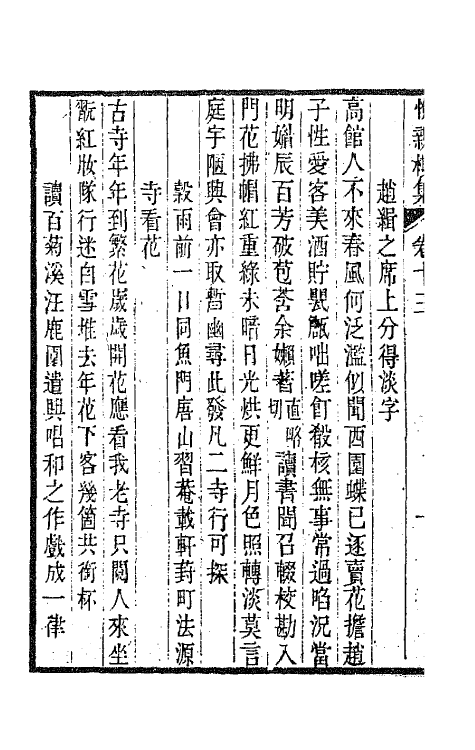 卷十三
趙緝之席上分得淡字
高館人不來春風何泛濫似聞西園蝶已逐賣花擔趙
子性愛客美酒貯甖甔咄嗟飣殽核無事常過啗況當
明媚辰百芳破苞萏余嬾著直略切讀書聞召輟校勘入
門花拂帽紅重綠未暗日光烘更鮮月色照轉淡莫言
庭宇陋興會亦取暫幽尋此發凡二寺行可探
穀雨前一日同魚門唐山習菴載軒葑町法源
寺看花
古寺年年到繁花歲歲開花應看我老寺只閱人來坐
翫紅妝隊行迷白雪堆去年花下客幾箇共銜杯
讀百菊溪汪鹿園遣興唱和之作戲成一律